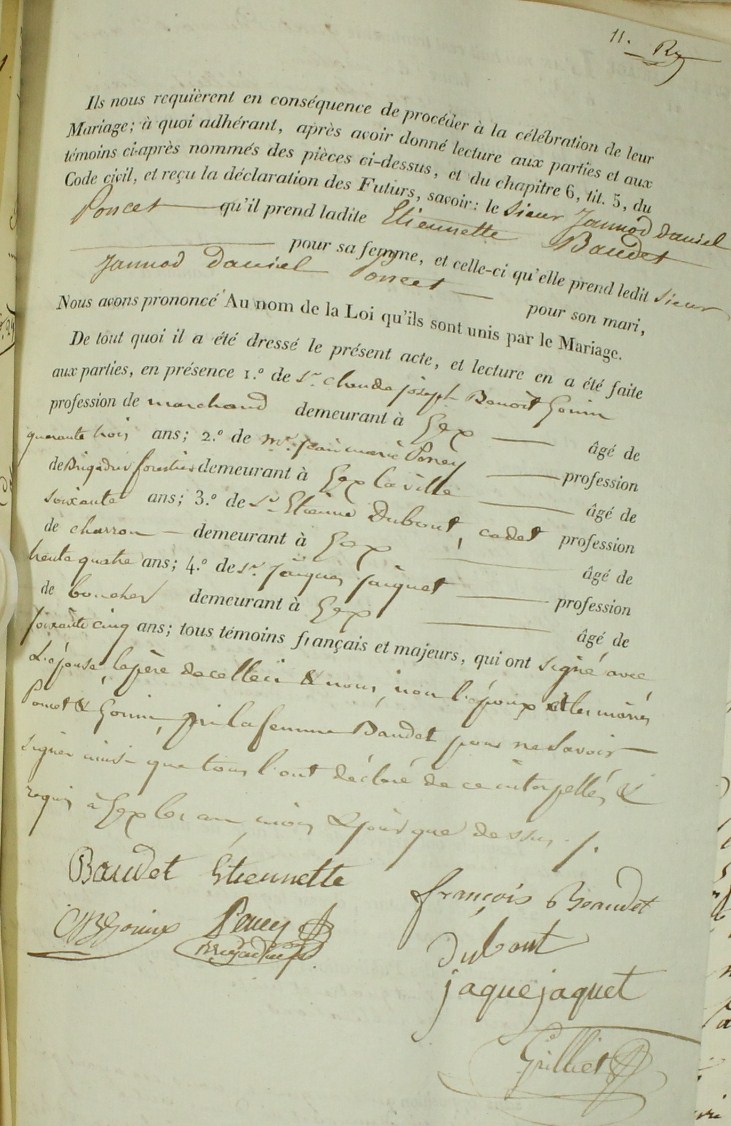 11.
Ils nous requièrent en conséquence de procéder à la célébration de leur
Mariage; à quoi adhérant, après avoir donné lecture aux parties et aux
témoins ci-après nommés des pièces ci-dessus, et du chapitre 6, tit. 5, du
Code civil, et reçu la déclaration des Futurs, savoir: le Sieur Jannod Daniel
Poncet qu'il prend ladite Etiennette Baudet
pour sa femme, et celle-ci qu'elle prend ledit Sieur
Jannod Daniel Poncet pour son mari,
Nous avons prononcé Au nom de la Loi qu'ils sont unis par le Mariage.
De tout quoi il a été dressé le présent acte, et lecture en a été faite
aux parties, en présence 1.º de Sr. Claude joseph Benoit Gonin
profession de marchand demeurant à Gex âgé de
quarante trois ans; 2.º de Mr. jean marie Perrey profession
de Brigadier forestier demeurant à Gex la ville âgé de
soixante ans; 3.º de Sr. Etienne Dubout, cadet profession
de charron demeurant à Gex âgé de
trente quatre ans; 4.º de Sr. Jaques Jaquet profession
de boucher demeurant à Gex âgé de
soixante cinq ans; tous témoins français et majeurs, qui ont signé avec
L'épouse, le père de celleci & nous, non l'époux et les mères
Poncet & Gonin, ni la femme Baudet pour ne savoir
signer ainsi que tous l'ont déclaré de ce interpellés &
requis à Gex les an, mois & jour que dessus ./.
Baudet Etiennette
françois Beaudet
CJB Gonin Perrey
Brigadier
dubout
jaque jaquet
Grilliet